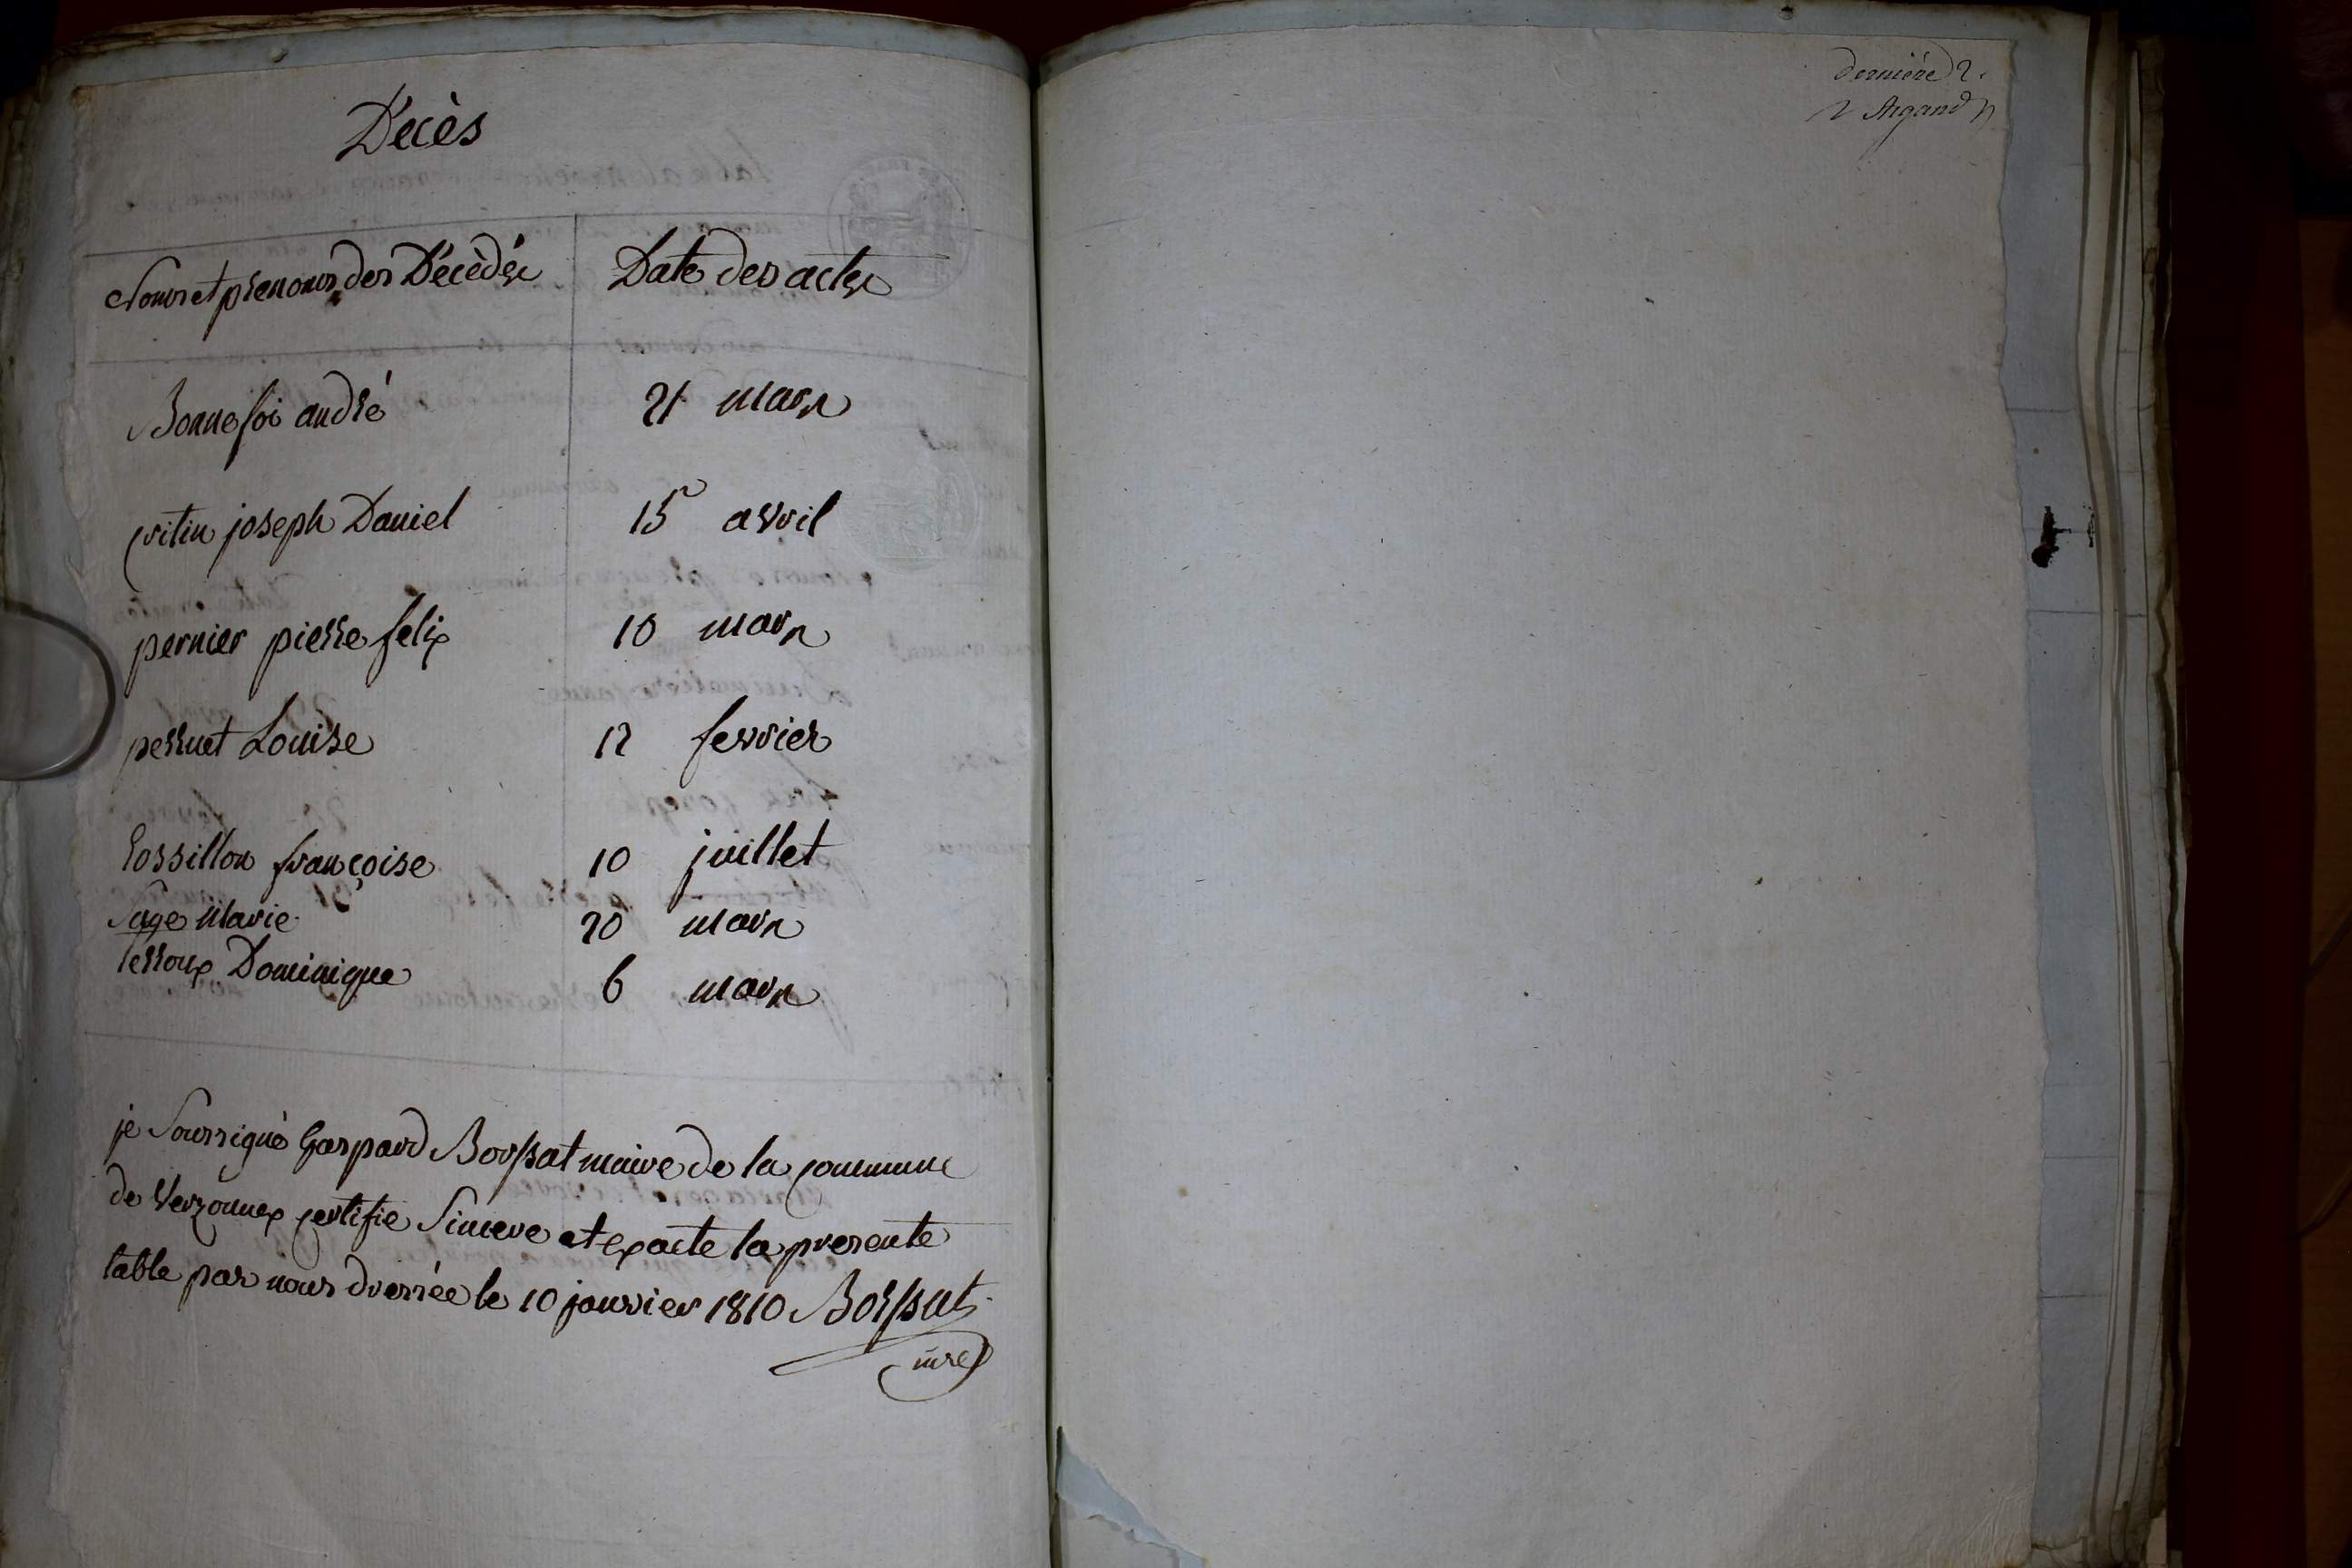 Décès
Noms et prenoms des Décédés Date des actes
Bonnefoi andré 21 mars
joseph Daniel 15 avril
pernier pierre felix 10 mars
perruet Louise 12 fevrier
rossillon françoise 10 juillet
Sage Marie 20 mars
terroux Dominique 6 mars
je Soussigné Gaspard Borssat maire de la commune
de certifie Sincere et exacte la presente
table par nous dressée le 10 janvier 1810 Borssat
mre
dernière
Argand